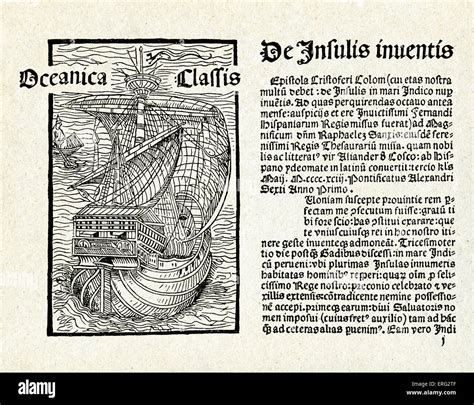 Oceanica Classis
De Insulis inventis
Epistola Cristoferi Colom (cui etas nostra
multū debet: de Insulis in mari Indico nup
inuētis. Ad quas perquirendas octauo antea
mense: auspicijs et ere Inuictissimi Fernandi
Hispaniarum Regis missus fuerat) ad Mag-
nificum dñm Raphaelez Sanxis: eiusdē sere-
nissimi Regis Thesaurariū missa. quam nobi
lis ac litterat⁹ vir Aliander d̄ Cosco: ab His-
pano ydeomate in latinū conuertit: tercio kl̄s
Maij. M.cccc.xciij. Pontificatus Alexandri
Sexti Anno Primo.
Quoniam suscepte prouintie rem p̄-
fectam me p̄secutum fuisse: gratū ti
bi fore scio: has p̄stitui exarare: que
te vniuscuiusq̄ rei in hoc nostro iti-
nere geste inuenteq̄ admoneāt. Tricesimoter
tio die postq̄ȝ Gadibus discessi: in mare Indi
cū perueni: vbi plurimas Insulas innumeris
habitatas hominib⁹ reperi: quaꝝ oīm p̄ feli-
cissimo Rege nostro: preconio celebrato ⁊ ve-
xillis extensis: contradicente nemine possessio-
nē accepi. primeq̄ȝ earum: diui Saluatoris no
men imposui (cuius fret⁹ auxilio) tam ad hāc
q̄ȝ ad ceteras alias puenim⁹. Eam vero Indi
j
alamy
Image ID: ERG2TF
www.alamy.com